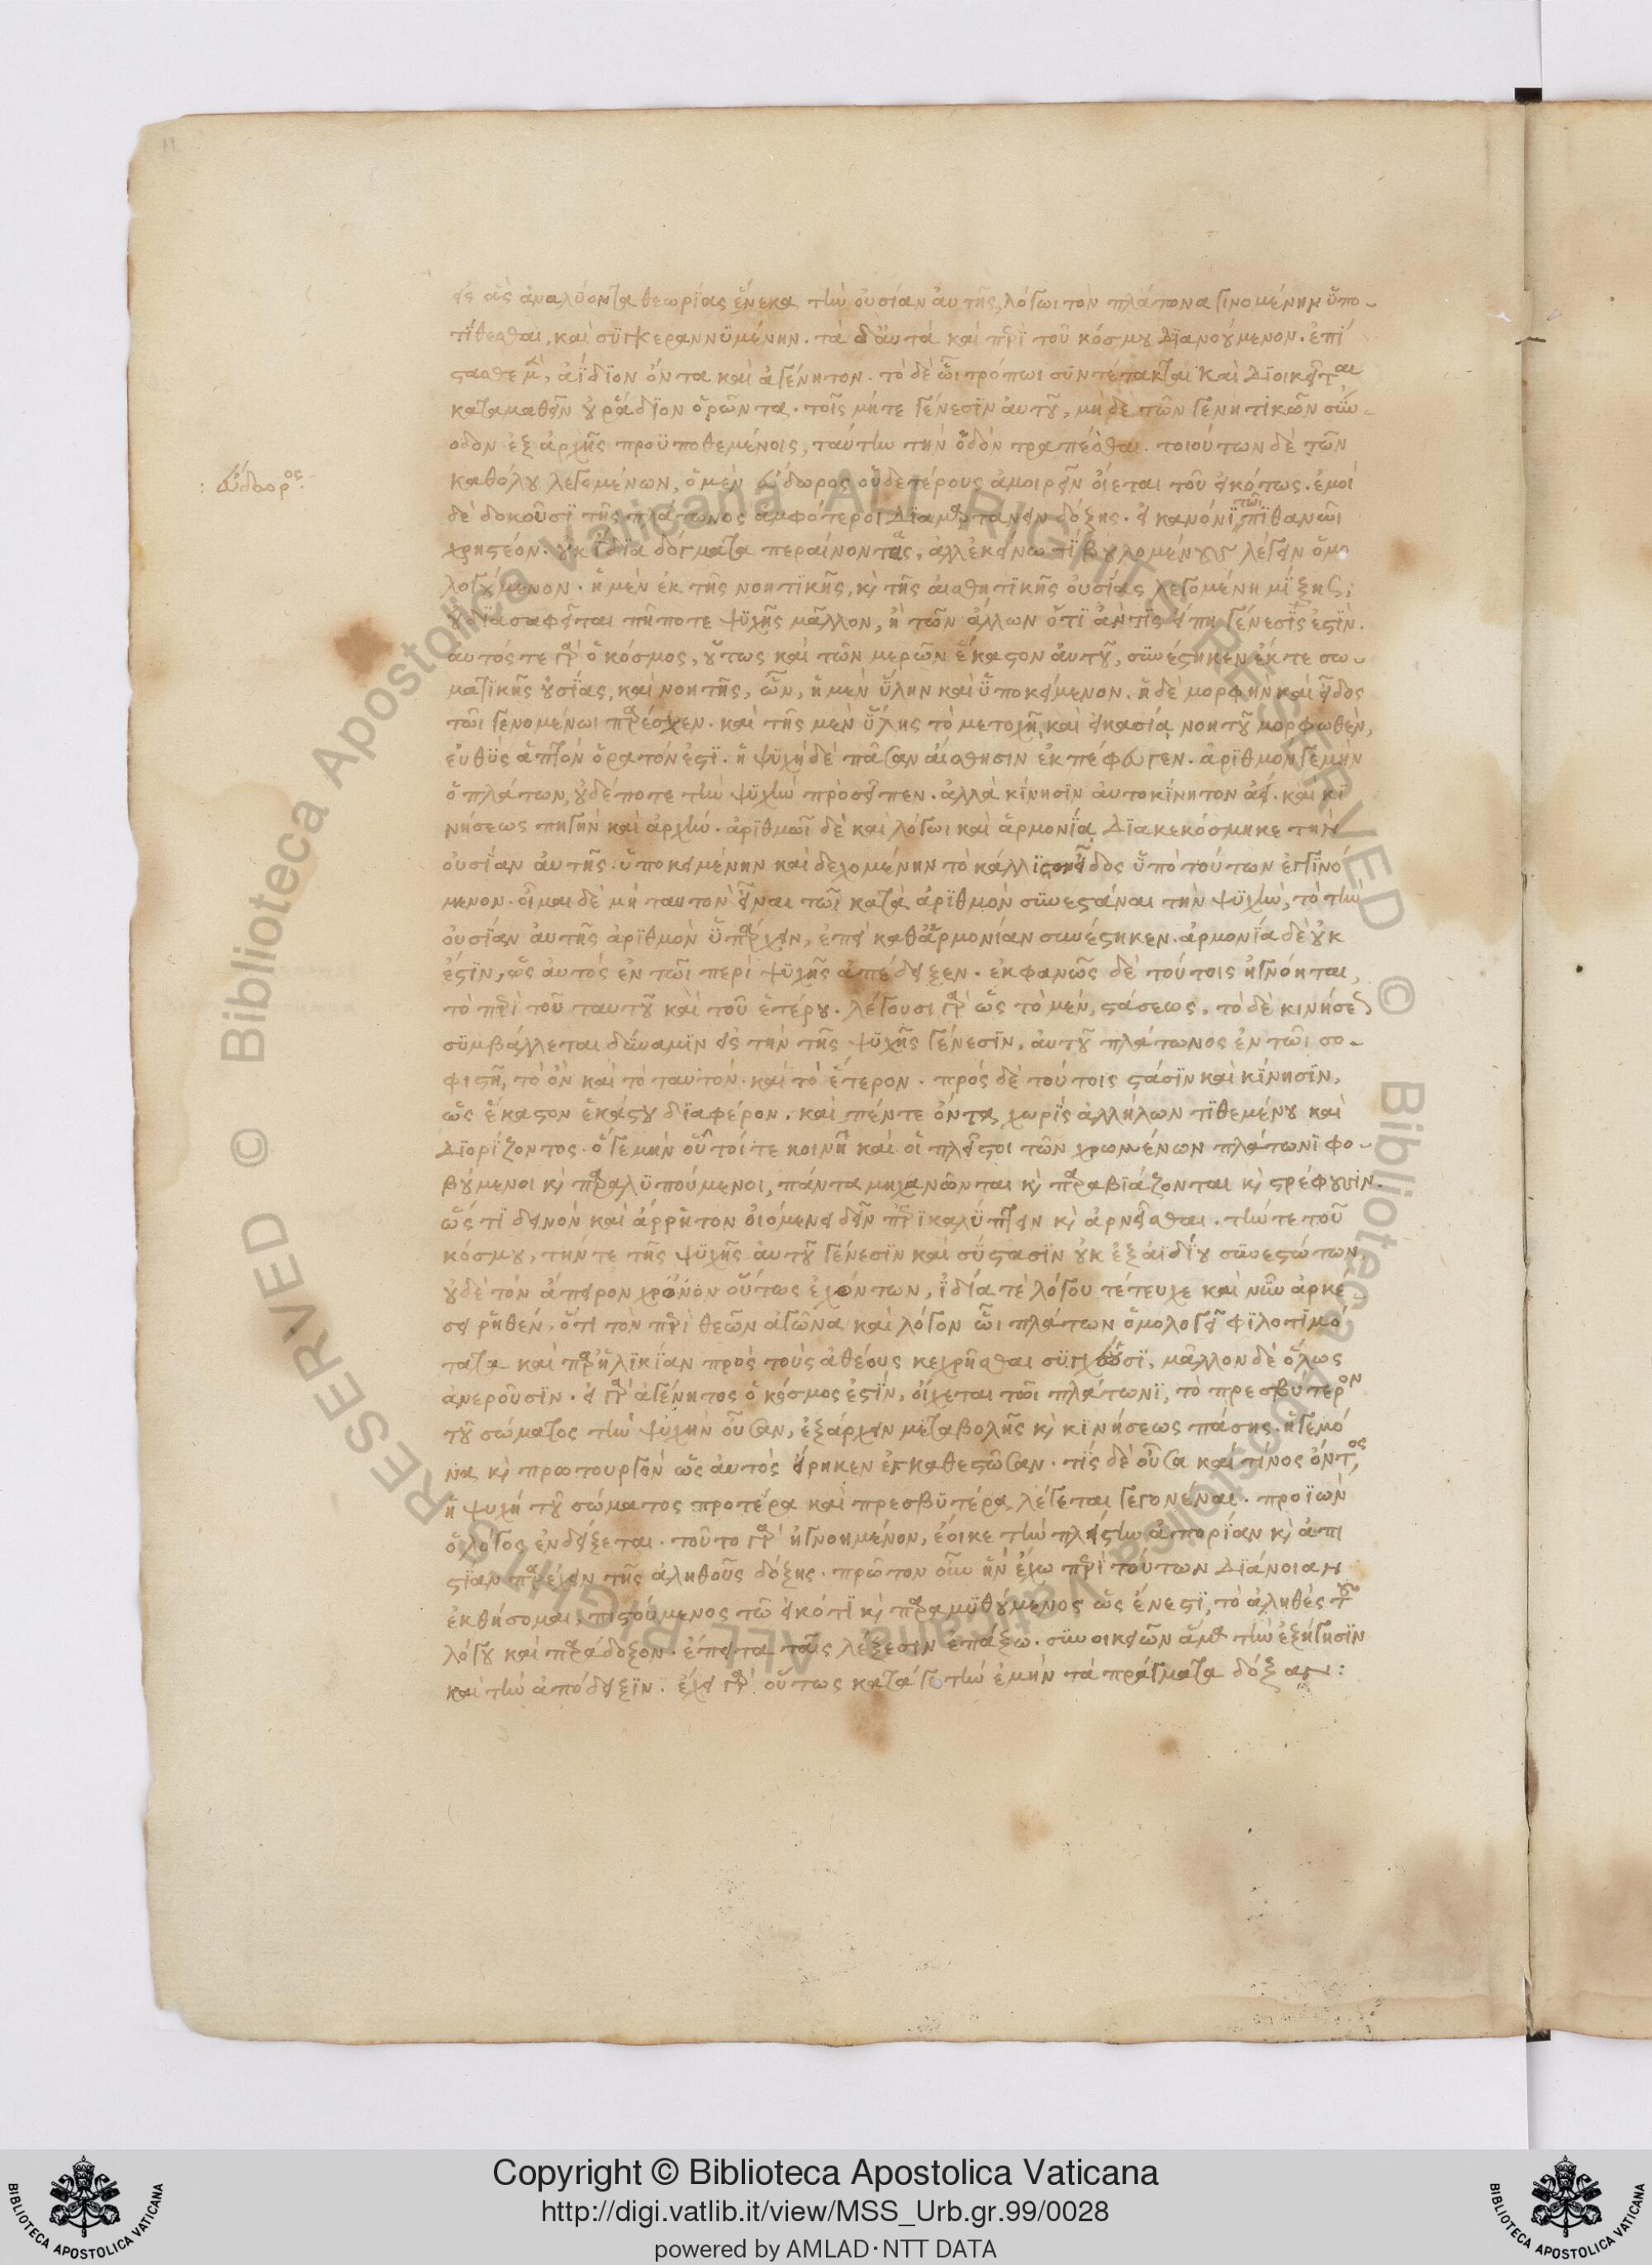 εἰς ἃς ἀναλύοντα θεωρίας ἕνεκα τὴν οὐσίαν αὐτῆς, λόγωι τὸν πλάτωνα γινομένην ὑπο-
τίθεσθαι, καὶ συγκεραννυμένην. τὰ δ'αυτὰ καὶ περὶ τοῦ κόσμου διανοούμενον. ἐπί
στασθε μὲν, ἀΐδιον ὄντα καὶ ἀγένητον. τὸ δὲ ὧι τρόπωι συντέτακται καὶ διοικεῖται
καταμαθεῖν οὐ ῥάδιον ὁρῶντα. τοῖς μήτε γένεσιν αὐτοῦ, μὴ δὲ τῶν γενητικῶν σύν-
οδον ἐξ ἀρχῆς προϋποθεμένοις, ταύτην τὴν ὁδὸν τραπέσθαι. τοιούτων δὲ τῶν
: εὔδωρος:
καθόλου λεγομένων, ὁ μὲν εὔδωρος οὐδετέρους ἀμοιρεῖν οἴεται τοῦ εἰκότως. ἐμοὶ
δὲ δοκοῦσι τῆς πλάτωνος ἀμφότεροι διαμαρτάνειν δόξης. εἰ κανόνι τῶι πιθανῶι
χρηστέον. οὐκ ἴδια δόγματα περαίνοντας, ἀλλ'ἐκείνω τι βουλομένους λέγειν ὁμο
λογούμενον. ἡ μὲν ἐκ τῆς νοητικῆς, κὶ τῆς αἰσθητικῆς οὐσίας λεγομένη μίξης;
οὐ διασαφεῖται πῆ ποτε ψυχῆς μᾶλλον, ἢ τῶν ἄλλων ὅτι ἄν τις εἴπη γένεσίς ἐστιν.
αυτός τε γὰρ ὁ κόσμος, οὕτως καὶ τῶν μερῶν ἕκαστον αὐτοῦ, συνέστηκεν ἔκ τε σω-
ματικῆς οὐσίας, καὶ νοητῆς, ὧν, ἡ μὲν ὕλην καὶ ὑποκείμενον. ἡ δὲ μορφὴν καὶ εἶδος
τῶι γενομένωι παρέσχεν. καὶ τῆς μὲν ὕλης τὸ μετοχῆ καὶ εἰκασία νοητοῦ μορφωθὲν,
εὐθὺς ἁπτὸν ὁρατόν ἐστι. ἡ ψυχὴ δὲ πᾶσαν αἴσθησιν ἐκπέφευγεν. ἀριθμὸν γε μὴν
ὁ πλάτων, οὐδέποτε τὴν ψυχὴν προσεῖπεν. ἀλλὰ κίνησιν αὐτοκίνητον ἀεί. καὶ κι
νήσεως πηγὴν καὶ ἀρχήν. ἀριθμῶι δὲ καὶ λόγωι καὶ ἁρμονία διακεκόσμηκε τὴν
οὐσίαν αὐτῆς. ὑποκειμένην καὶ δεχομένην τὸ κάλλιστον εἶδος ὑπὸ τούτων ἐγγινό
μενον. οἶμαι δὲ μὴ ταυτὸν εἶναι τῶι κατὰ ἀριθμὸν συνεστάναι τὴν ψυχὴν, τὸ τὴν
οὐσίαν αὐτῆς ἀριθμὸν ὑπάρχειν, ἐπεὶ καθ'ἁρμονίαν συνέστηκεν. ἁρμονία δὲ οὐκ
ἔστιν, ὡς αὐτὸς ἐν τῶι περὶ ψυχῆς ἀπέδειξεν. ἐκφανῶς δὲ τούτοις ἠγνόηται,
τὸ περὶ τοῦ ταυτοῦ καὶ τοῦ ἑτέρου. λέγουσι γὰρ ὡς τὸ μὲν, στάσεως, τὸ δὲ κινήσεως
συμβάλλεται δύναμιν εἰς τὴν τῆς ψυχῆς γένεσιν, αὐτοῦ πλάτωνος ἐν τῶι σο-
φιστῆ, τὸ ὂν καὶ τὸ ταυτόν. καὶ τὸ ἕτερον. πρὸς δὲ τούτοις στάσιν καὶ κίνησιν,
ὡς ἕκαστον ἑκάστου διαφέρον. καὶ πέντε ὄντα χωρὶς ἀλλήλων τιθεμένου καὶ
διορίζοντος. ὅ γε μὴν οὗτοί τε κοινῆ καὶ οἱ πλεῖστοι τῶν χρωμένων πλάτωνι φο-
βούμενοι κὶ παραλυπούμενοι, πάντα μηχανῶνται κὶ παραβιάζονται κὶ στρέφουσιν.
ὥς τι δεινὸν καὶ ἄρρητον οἰόμενοι δεῖν περικαλύπτειν κὶ ἀρνεῖσθαι. τήν τε τοῦ
κόσμου, τήν τε τῆς ψυχῆς αὐτοῦ γένεσιν καὶ σύστασιν οὐκ ἐξ ἀϊδίου συνεστώτων,
οὐδὲ τὸν ἄπειρον χρόνον οὕτως ἐχόντων, ἰδία τὲ λόγου τέτευχε καὶ νῦν ἀρκέ-
σει ῥηθέν. ὅτι τὸν περὶ θεῶν ἀγῶνα καὶ λόγον ὧι πλάτων ὁμολογεῖ φιλοτιμό
τατα καὶ παρ'ἡλικίαν πρὸς τοὺς ἀθέους κεχρῆσθαι συγχέουσι, μᾶλλον δὲ ὅλως
ἀνεροῦσιν. εἰ γὰρ ἀγένητος ὁ κόσμος ἐστίν, οἴχεται τῶι πλάτωνι, τὸ πρεσβύτερον
τοῦ σώματος τὴν ψυχὴν οὖσαν, ἐξάρχειν μεταβολῆς κὶ κινήσεως πάσης. ἡγεμό
να κὶ πρωτουργὸν ὡς αὐτὸς εἴρηκεν ἐγκαθεστῶσαν. τίς δὲ οὖσα καὶ τίνος ὄντος,
ἡ ψυχὴ τοῦ σώματος προτέρα καὶ πρεσβυτέρα λέγεται γεγονέναι. προϊὼν
ὁ λόγος ἐνδείξεται. τοῦτο γὰρ ἠγνοημένον, ἔοικε τὴν πλείστην ἀπορίαν κὶ ἀπι
στίαν παρέχειν τῆς ἀληθοῦς δόξης. πρῶτον οὖν ἣν ἔχω περὶ τούτων διάνοιαν
ἐκθήσομαι, πιστούμενος τῶ εἰκότι κὶ παραμυθούμενος ὡς ἔνεστι, τὸ ἀληθὲς τοῦ
λόγου καὶ παράδοξον. ἔπειτα ταῖς λέξεσιν ἐπάξω. συνοικειῶν ἅμα τὴν ἐξήγησιν
καὶ τὴν ἀπόδειξιν. ἔχει γὰρ οὕτως κατά γε τὴν ἐμὴν τὰ πράγματα δόξαν:
Copyright © Biblioteca Apostolica Vaticana
http://digi.vatlib.it/view/MSS_Urb.gr.99/0028
powered by AMLAD·NTT DATA